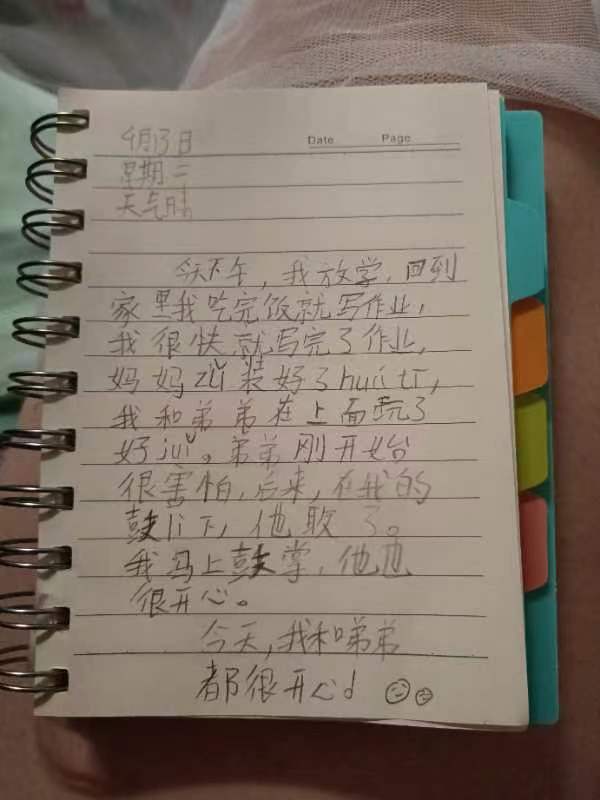 Date Page
4月13日
星期二
天气晴
今天下午，我放学，回到
家里我吃完饭就写作业，
我很快就写完了作业，
妈妈zǔ装好了huá tī，
我和弟弟在上面玩了
好jiǔ。弟弟刚开始
很害怕，后来，在我的
鼓lì下，他敢了。
我马上鼓掌，他也
很开心。
今天，我和弟弟
都很开心